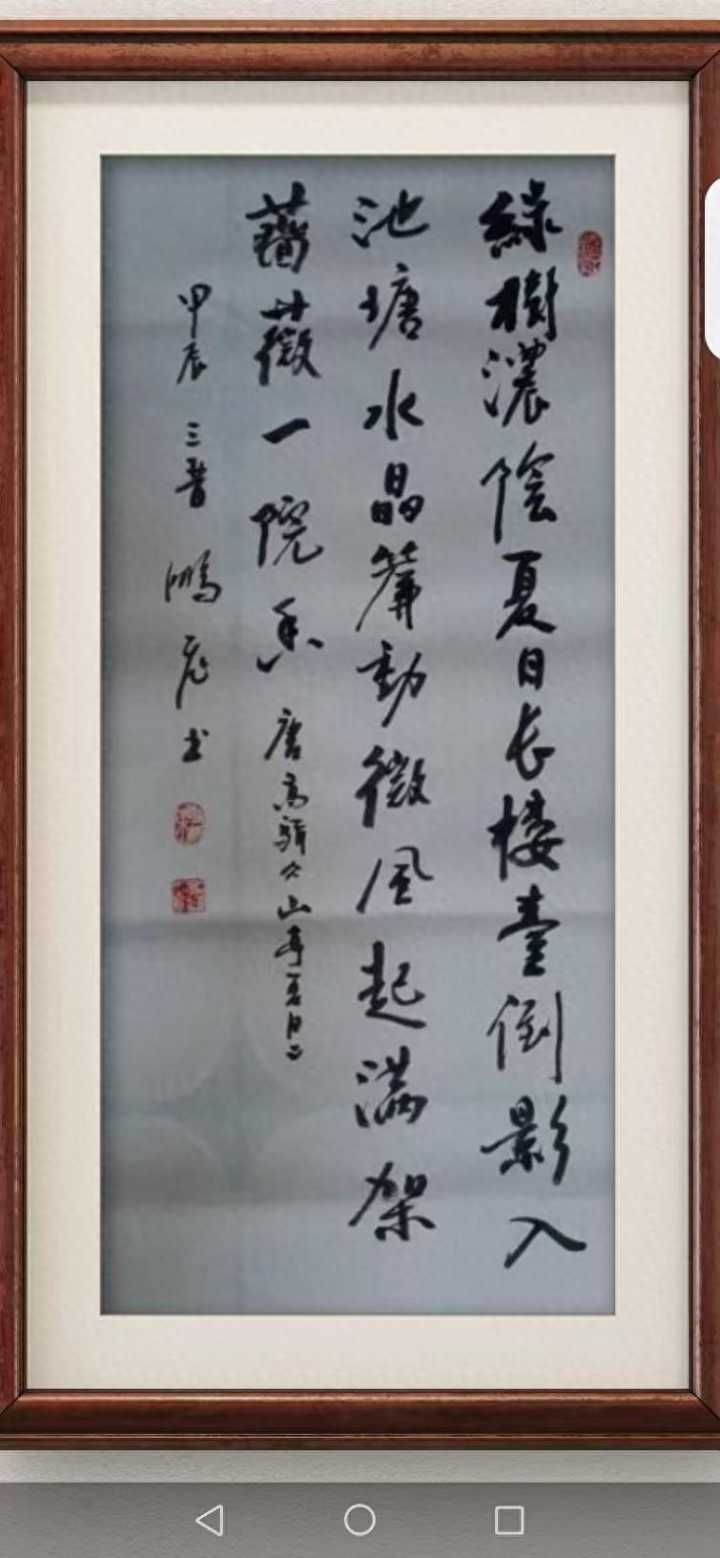 綠樹濃陰夏日长樓臺倒影入
池塘水晶簾動微風起滿架
薔薇一院香 唐高駢 山亭夏日
甲辰 三晉 鴻 书